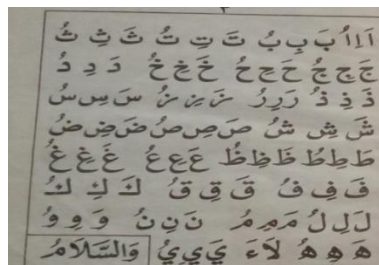 اَ اِ اُ بَ بِ بُ تَ تِ تُ ثَ ثِ ثُ
جَ جِ جُ حَ حِ حُ خَ خِ خُ دَ دِ دُ
ذَ ذِ ذُ رَ رِ رُ زَ زِ زُ سَ سِ سُ
شَ شِ شُ صَ صِ صُ ضَ ضِ ضُ
طَ طِ طُ ظَ ظِ ظُ عَ عِ عُ غَ غِ غُ
فَ فِ فُ قَ قِ قُ كَ كِ كُ
لَ لِ لُ مَ مِ مُ نَ نِ نُ وَ وِ وُ
هَ هِ هُ لَاءَ يَ يِ يُ وَالسَّلَامُ